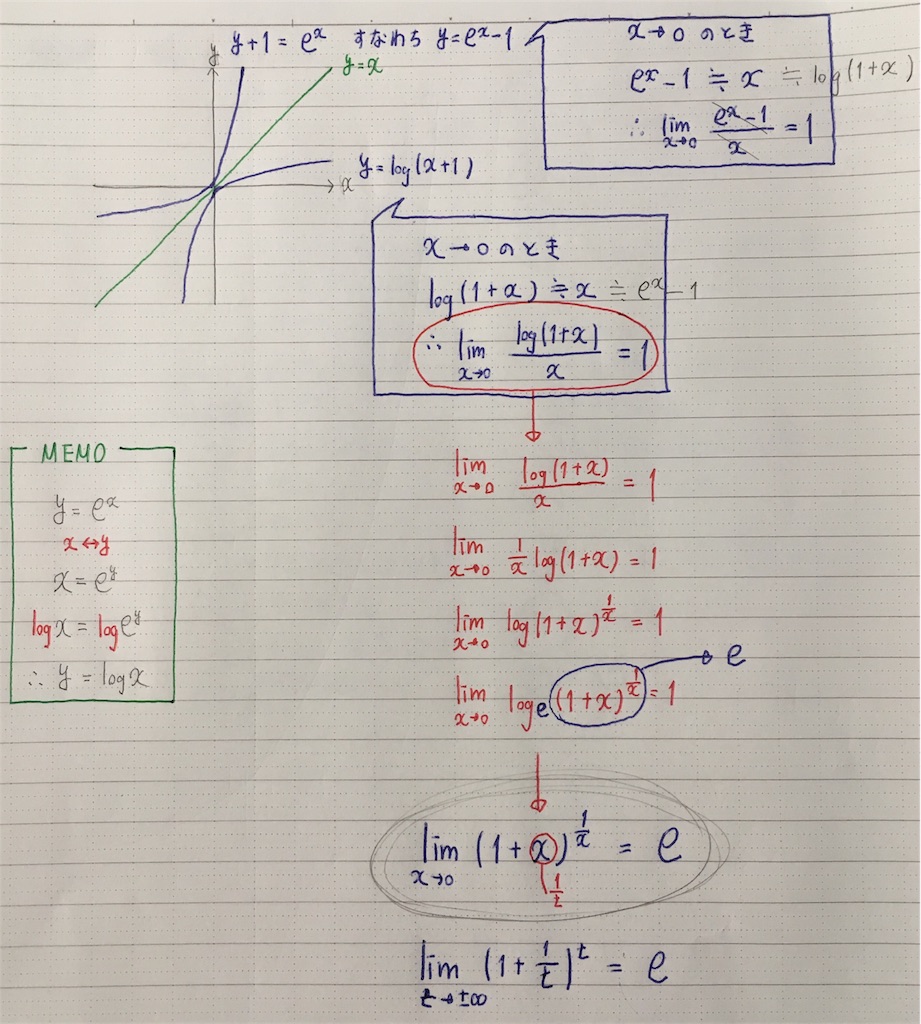 y+1 = eˣ すなわち y=eˣ-1
y
y=x
x
y=log(x+1)
x→0 のとき
eˣ-1 ≒ x ≒ log(1+x)
∴ lim_{x→0} (eˣ-1)/x = 1
x→0 のとき
log(1+x) ≒ x ≒ eˣ-1
∴ lim_{x→0} log(1+x)/x = 1
MEMO
y = eˣ
x↔y
x = e^y
logx = loge^y
∴ y = logx
lim_{x→0} log(1+x)/x = 1
lim_{x→0} 1/x log(1+x) = 1
lim_{x→0} log(1+x)^{1/x} = 1
lim_{x→0} log_e (1+x)^{1/x} = 1
e
lim_{x→0} (1+x)^{1/x} = e
1/t
lim_{t→±∞} (1+1/t)^t = e